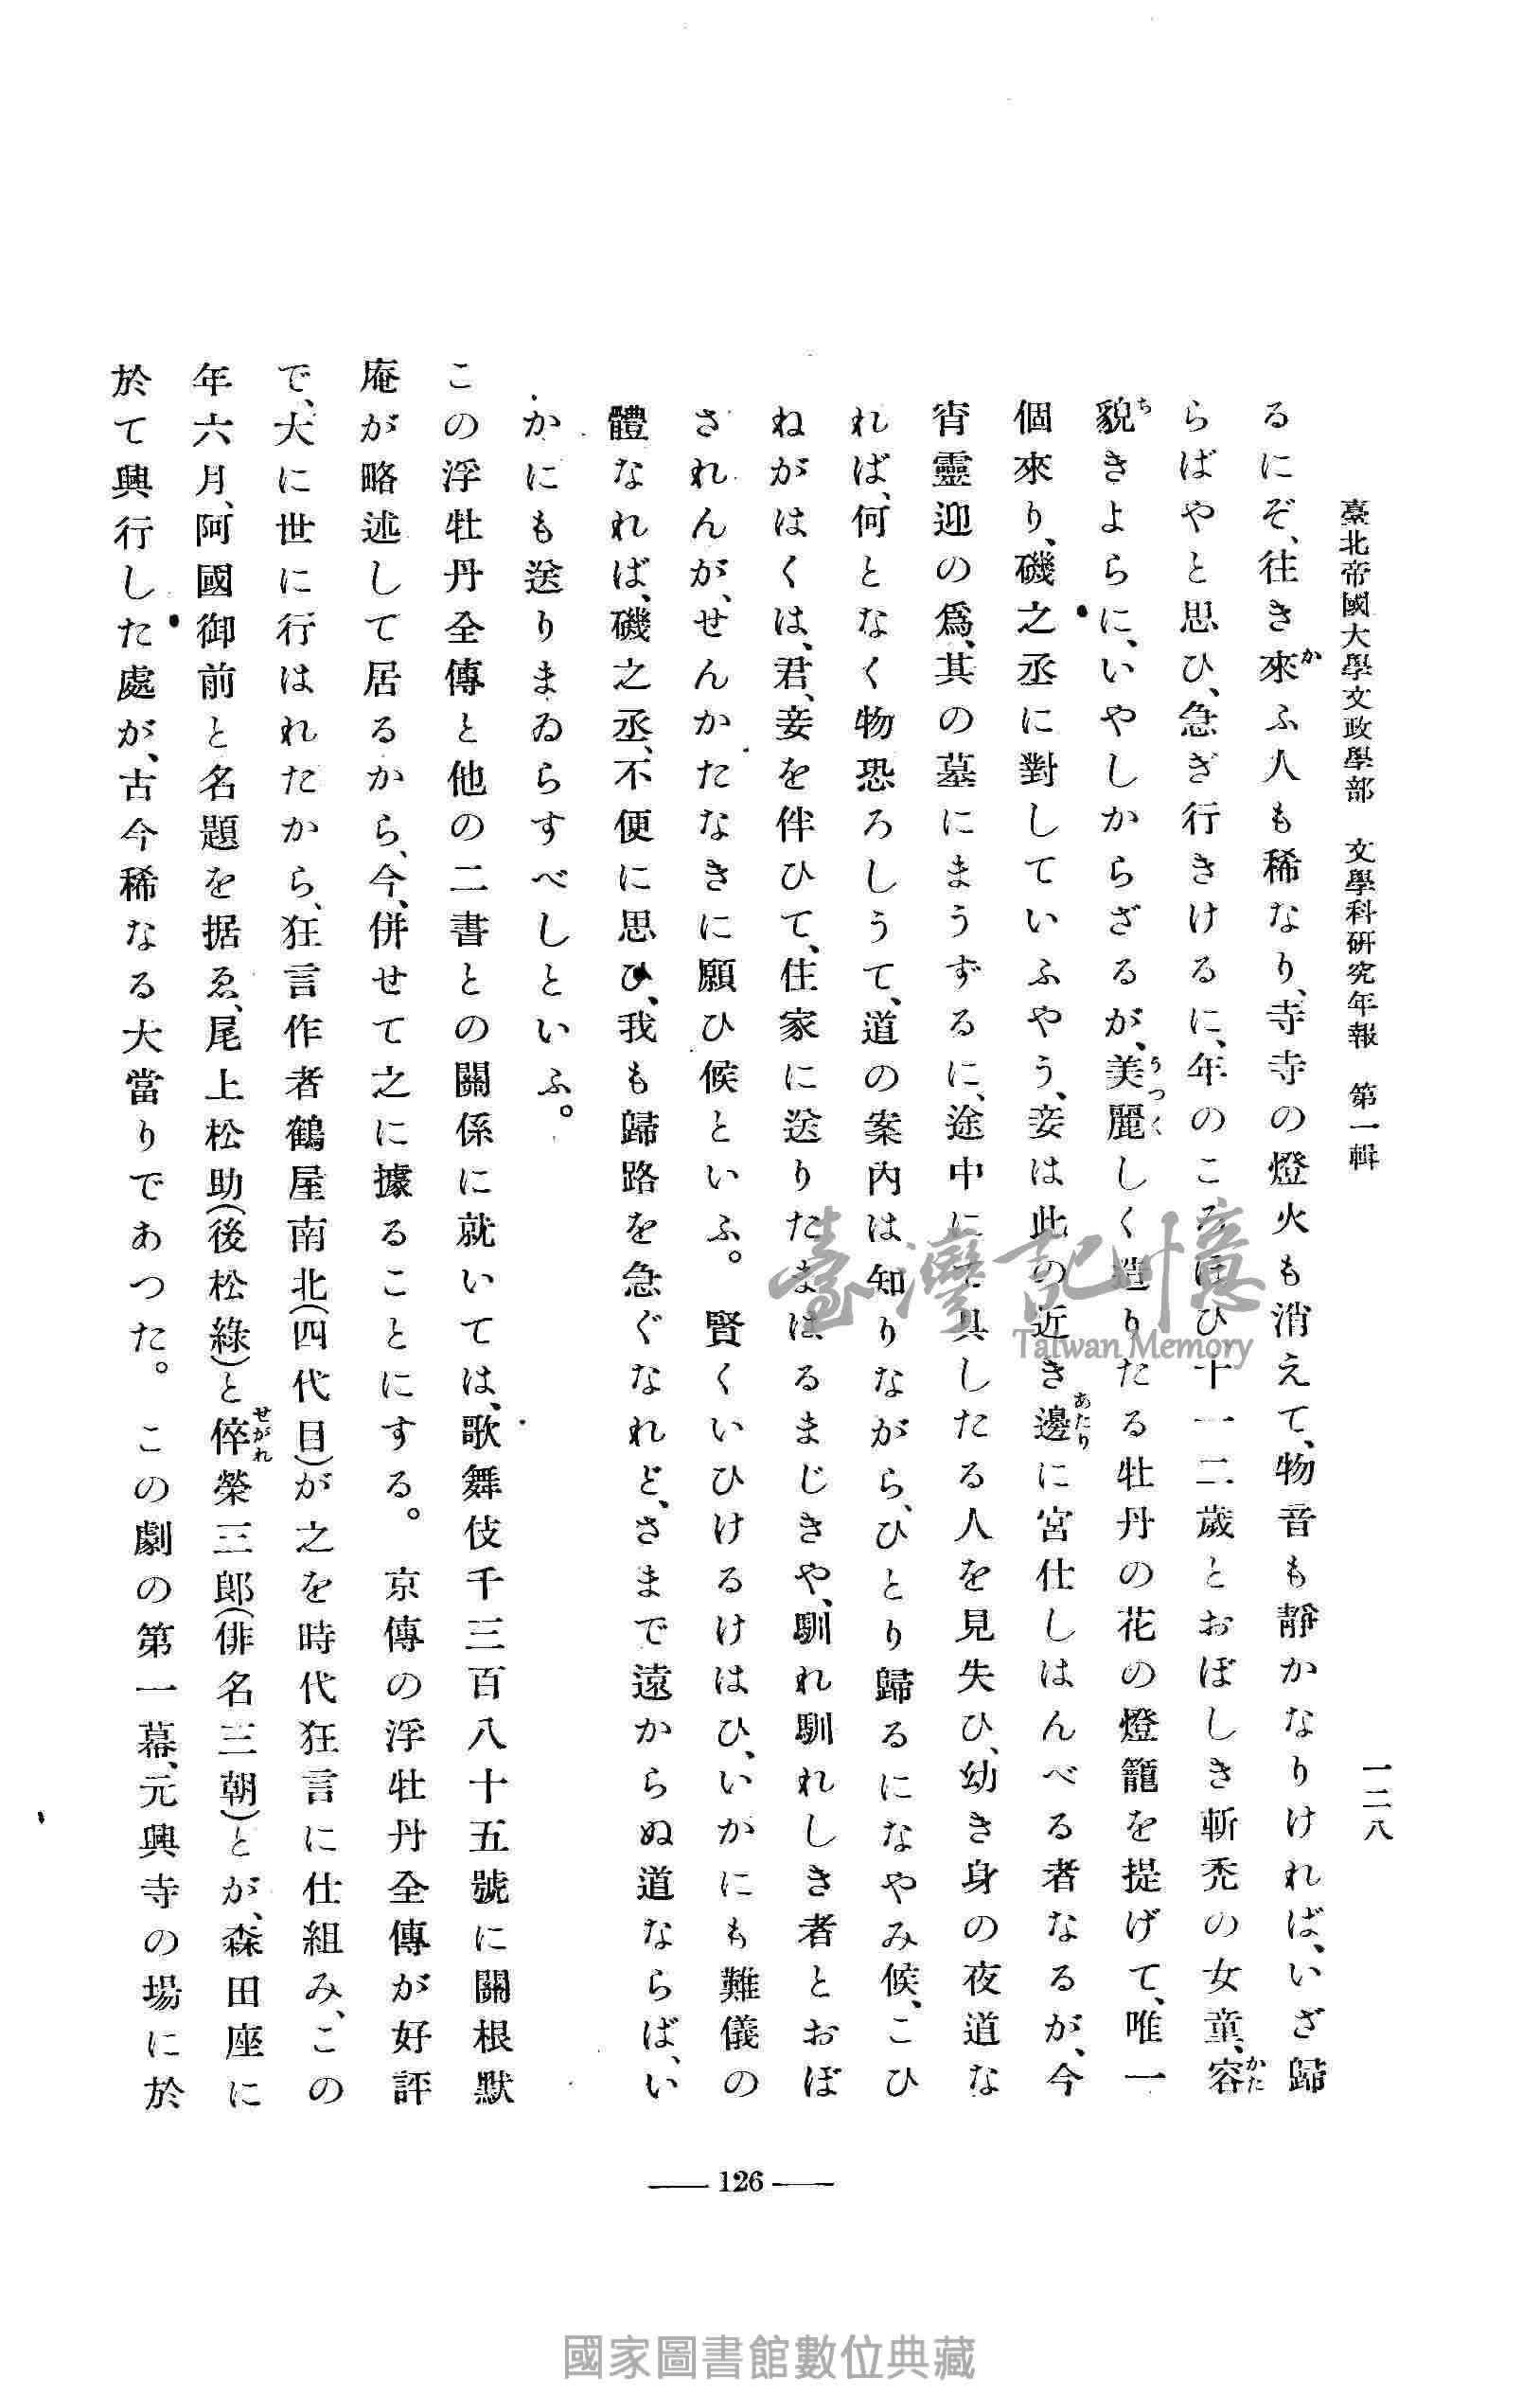 臺北帝國大學文政學部　文學科硏究年報　第一輯
一二八
るにぞ、往き來ふ人も稀なり、寺寺の燈火も消えて、物音も靜かなりければ、いざ歸
か
らばやと思ひ、急ぎ行きけるに、年のころほひ十一二歲とおぼしき斬禿の女童、容
かた
貌きよらに、いやしからざるが、美麗しく造りたる牡丹の花の燈籠を提げて、唯一
ち
うつく
個來り、磯之丞に對していふやう、妾は此の近き邊に宮仕しはんべる者なるが、今
あたり
宵靈迎の爲、其の墓にまうずるに、途中にて具したる人を見失ひ、幼き身の夜道な
れば、何となく物恐ろしうて、道の案內は知りながら、ひとり歸るになやみ候、こひ
ねがはくは、君、妾を伴ひて、住家に送りたまはるまじきや、馴れ馴れしき者とおぼ
されんが、せんかたなきに願ひ候といふ。賢くいひけるけはひ、いかにも難儀の
體なれば、磯之丞、不便に思ひ、我も歸路を急ぐなれど、さまで遠からぬ道ならば、い
かにも送りまゐらすべしといふ。
この浮牡丹全傳と他の二書との關係に就いては、歌舞伎千三百八十五號に關根默
庵が略述して居るから、今、併せて之に據ることにする。京傳の浮牡丹全傳が好評
で、大に世に行はれたから、狂言作者鶴屋南北(四代目)が之を時代狂言に仕組み、この
年六月、阿國御前と名題を据ゑ、尾上松助(後松綠)と倅榮三郎(俳名三朝)とが、森田座に
せがれ
於て興行した處が、古今稀なる大當りであつた。この劇の第一幕、元興寺の場に於
126
臺灣記憶
Taiwan Memory
國家圖書館數位典藏